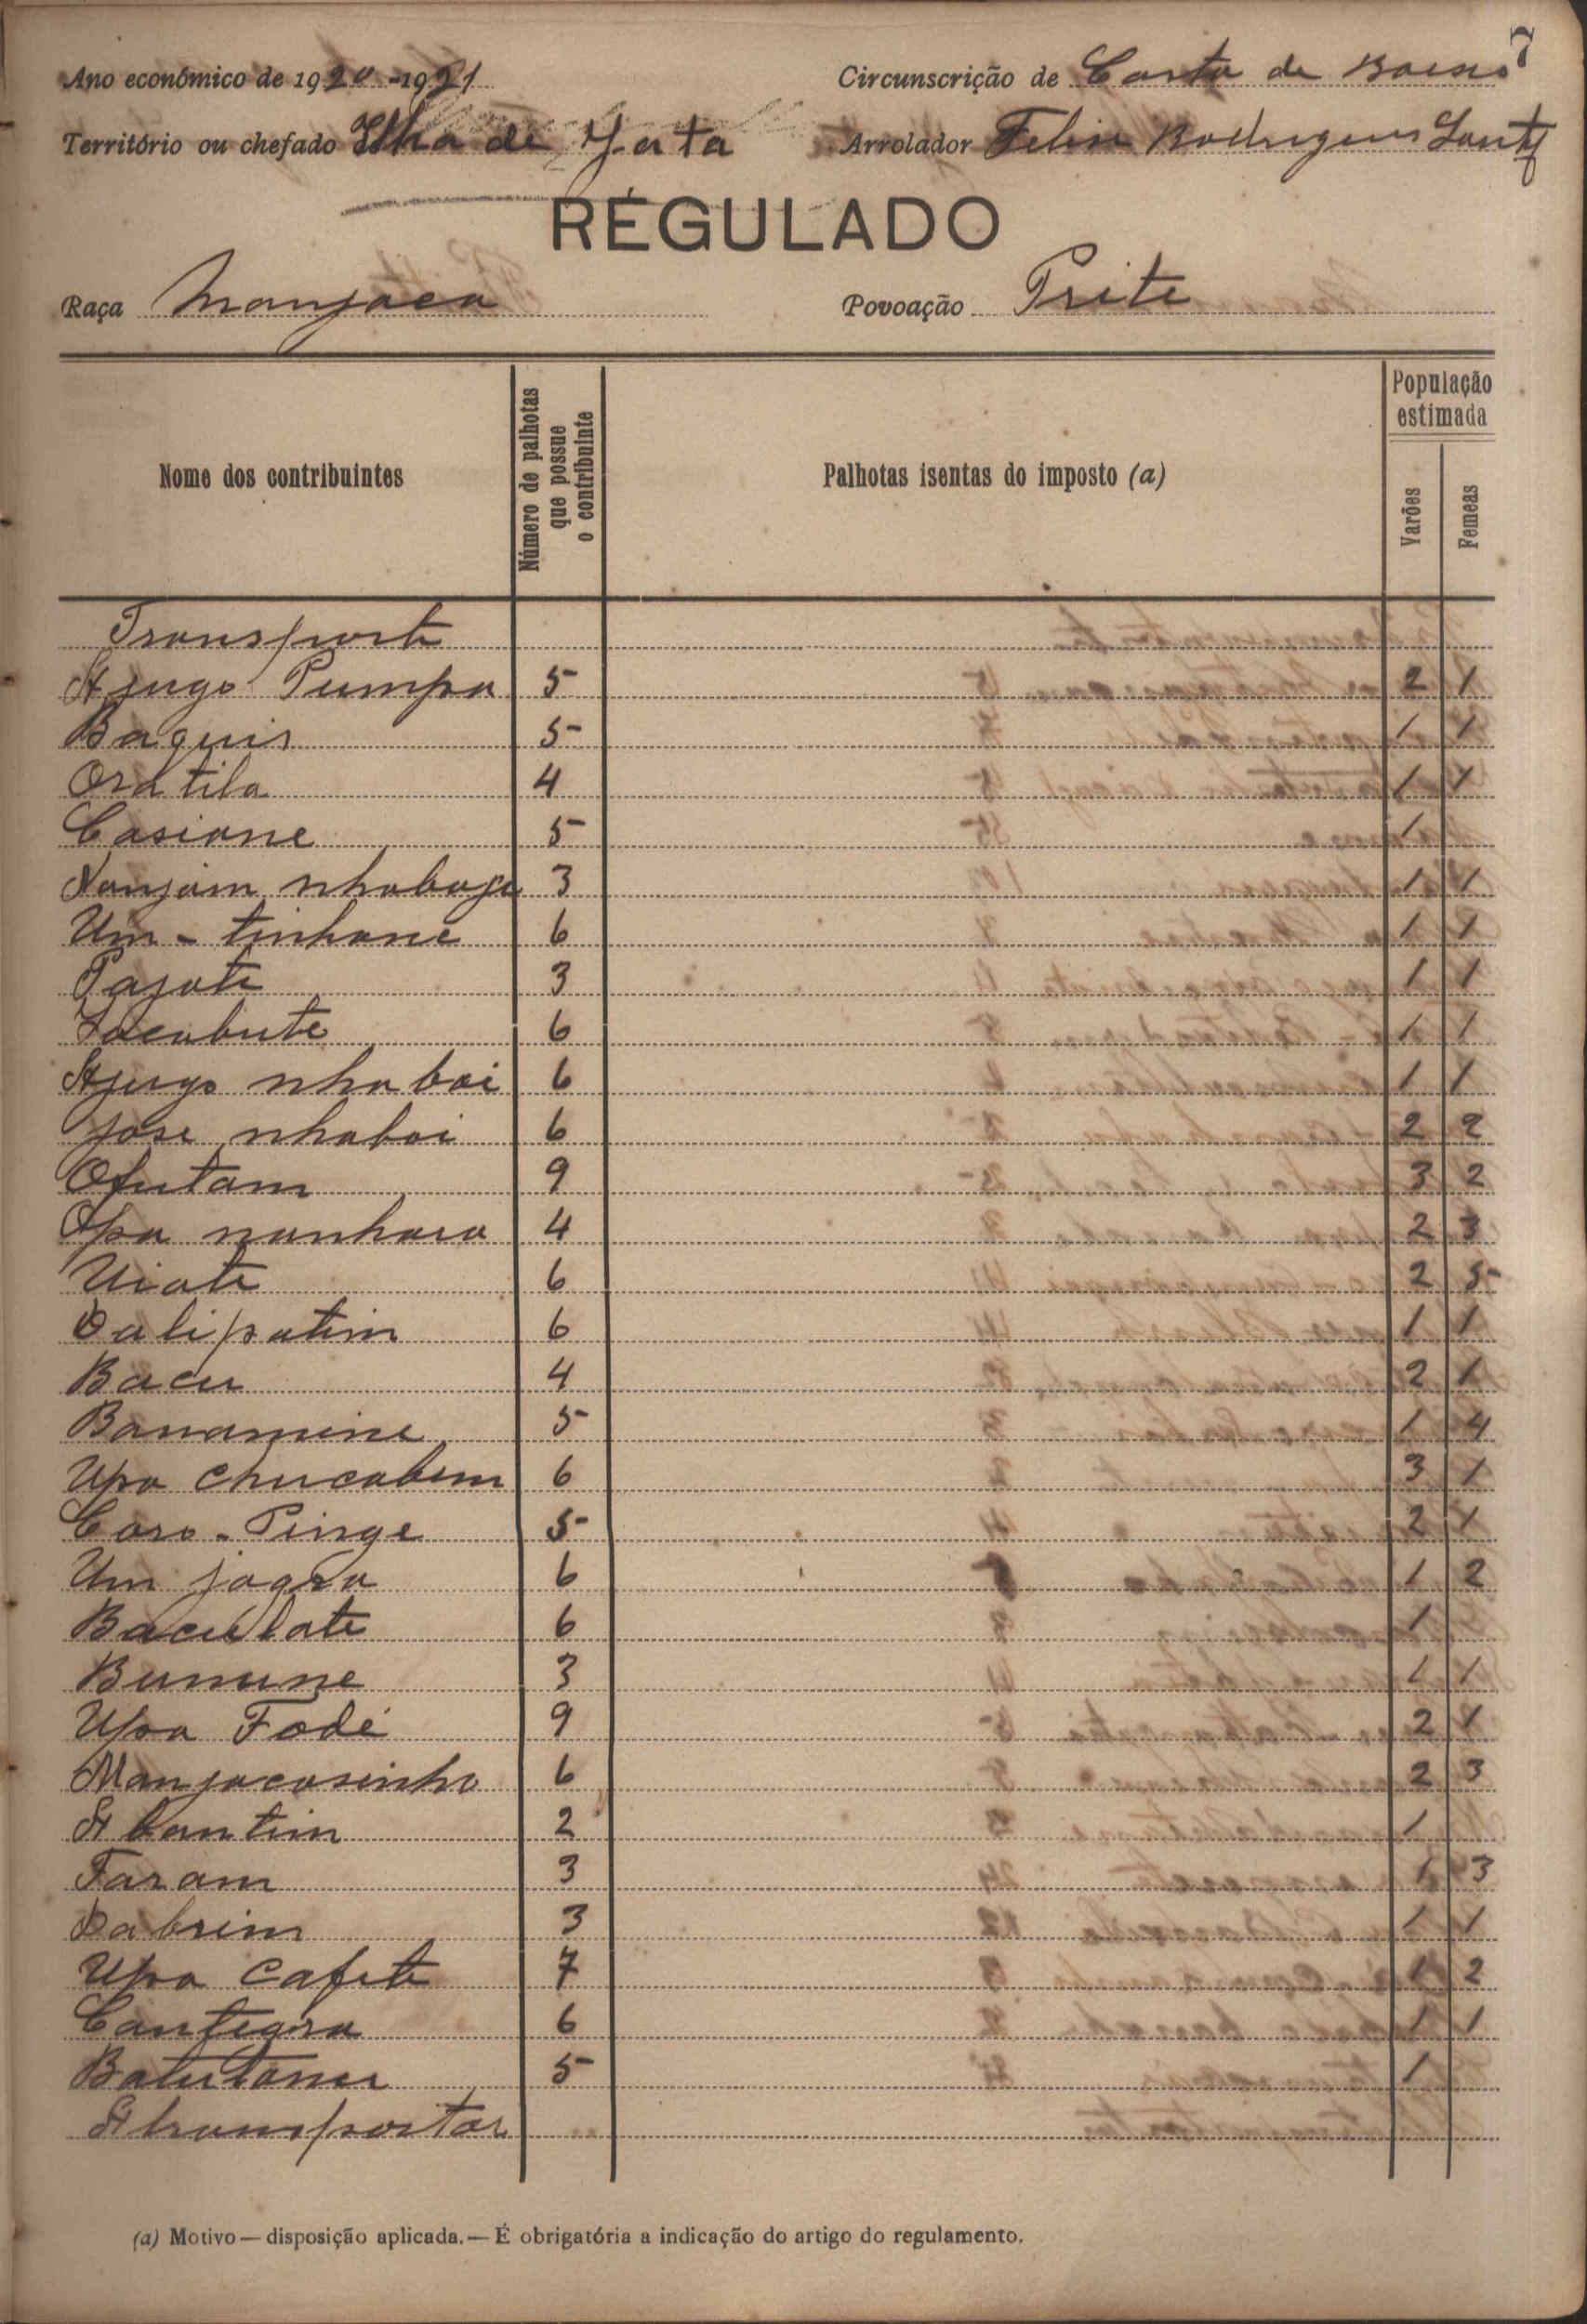 7
Ano económico de 1920-1921 Circunscrição de Costa de Baixo
Território ou chefado Ilha de Jata Arrolador Felix Rodrigues
RÉGULADO
Raça Manjaca Povoação Prite
Nome dos contribuintes
Número de palhotas que possue o contribuinte
Palhotas isentas do imposto (a)
População estimada
Varões
Femeas
Transporte
Ajugo Pumpa 5 2 1
Baquis 5 1 1
Ora tila 4 1 1
Casiane 5 1
Nanjam nhabaga 3 1 1
Um - tinhane 6 1 1
Pajate 3 1 1
Jacabute 6 1 1
Ajugo nhaboi 6 1 1
Jose nhaboi 6 2 2
Ofutam 9 3 2
Opa nanhara 4 2 3
Uiate 6 2 5
Dalipatim 6 1 1
Bacu 4 2 1
Banamine 5 1 4
Upa chucabum 6 3 1
Caro - Pinge 5 2 1
Um jagra 6 1 2
Baculate 6 1
Bunune 3 1 1
Upa Fodé 9 2 1
Manjacosinho 6 2 3
A bantim 2 1
Faram 3 1 3
Dabrim 3 1 1
Upa Cafete 7 1 2
Cantegra 6 1 1
Batutane 5 1
A transportar
(a) Motivo — disposição aplicada. — É obrigatória a indicação do artigo do regulamento.